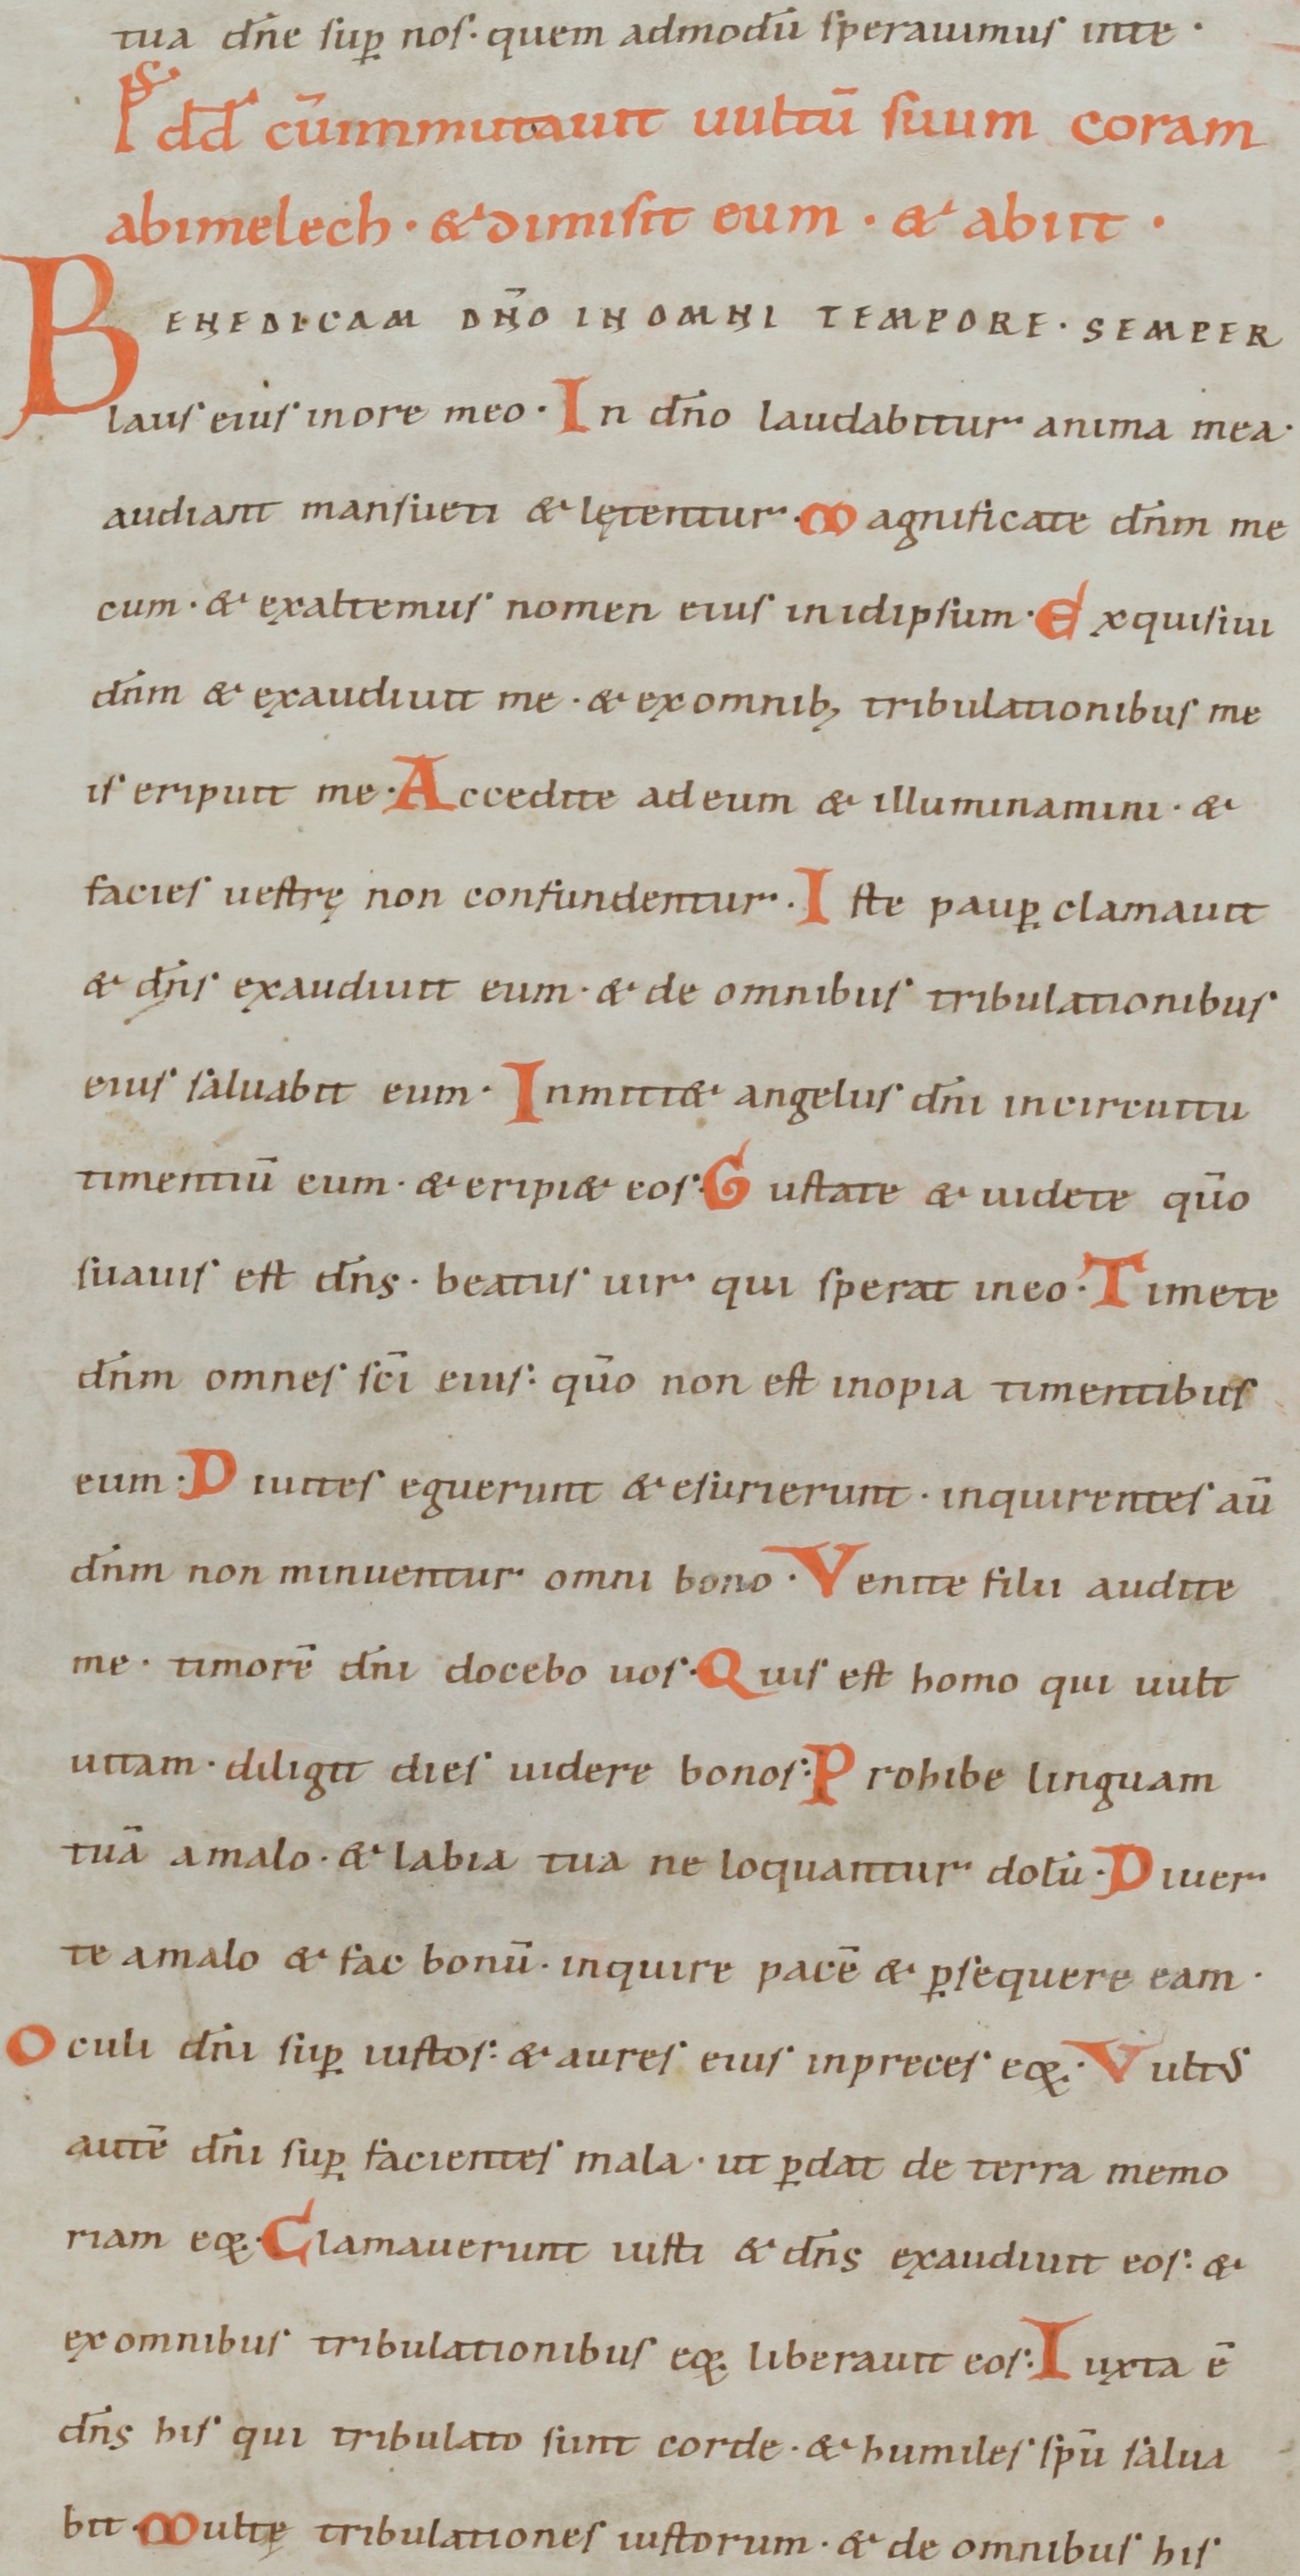 tua dn̄e sup̱ nos · quem admodū sperauimus inte ·
Ps dd̄ cūimmutauit uultū suum coram
abimelech · & dimisit eum · & abiit ·
BENEDICAM DN̄O IN OMNI TEMPORE · SEMPER
laus eius inore meo · In dn̄o laudabitur anima mea ·
audiant mansueti & lętentur · Magnificate dn̄m me
cum · & exaltemus nomen eius inidipsum · Exquisiui
dn̄m & exaudiuit me · & ex omnib; tribulationibus me
is eripuit me · Accedite adeum & illuminamini · &
facies uestrę non confundentur · Iste paup̱ clamauit
& dn̄s exaudiuit eum · & de omnibus tribulationibus
eius saluabit eum · Inmitt& angelus dn̄i incircuitu
timentiū eum · & eripi& eos · Gustate & uidete qūo
suauis est dn̄s · beatus uir qui sperat ineo · Timete
dn̄m omnes sc̄i eius : qūo non est inopia timentibus
eum : Diuites eguerunt & esurierunt · inquirentes aū
dn̄m non minuentur omni bono · Venite filii audite
me · timorē dn̄i docebo uos · Quis est homo qui uult
uitam · diligit dies uidere bonos : Prohibe linguam
tuā amalo · & labia tua ne loquantur dolū · Diuer
te amalo & fac bonū · inquire pacē & p̱sequere eam ·
Oculi dn̄i sup̱ iustos : & aures eius inpreces eoꝝ · Vultus
autē dn̄i sup̱ facientes mala · ut p̱dat de terra memo
riam eoꝝ · Clamauerunt iusti & dn̄s exaudiuit eos : &
ex omnibus tribulationibus eoꝝ liberauit eos : Iuxta ē
dn̄s his qui tribulato sunt corde · & humiles spū salua
bit · Multę tribulationes iustorum · & de omnibus his